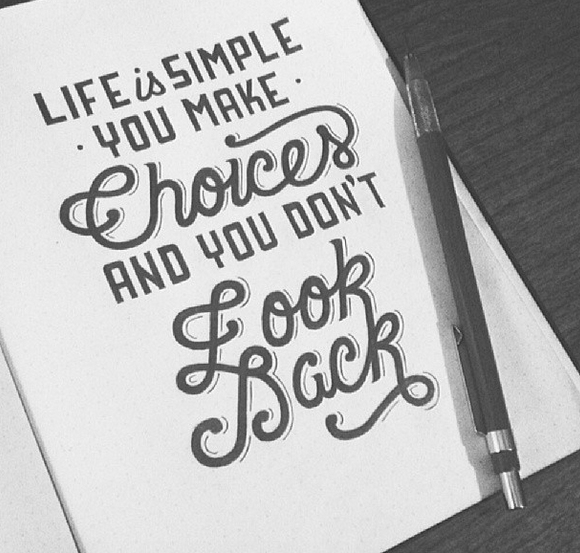 LIFE is SIMPLE
· YOU MAKE ·
Choices
AND YOU DON'T
Look
Back